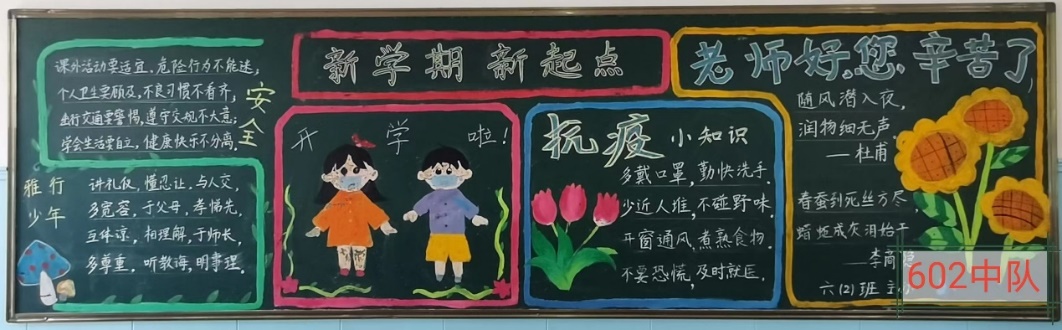 课外活动要适宜，危险行为不能迷；
个人卫生要顾及，不良习惯不看齐；
出行交通要警惕，遵守交规不大意；
学会生活要自立，健康快乐不分离。
安全
雅行
少年
讲礼仪，懂忍让，与人交，
多宽容，于父母，孝悌先，
互体谅，相理解，于师长，
多尊重，听教诲，明事理。
新学期 新起点
开学啦！
抗疫小知识
多戴口罩，勤快洗手．
少近人堆，不碰野味．
开窗通风，煮熟食物．
不要恐慌，及时就医．
老师好，您辛苦了
随风潜入夜，
润物细无声
——杜甫
春蚕到死丝方尽，
蜡炬成灰泪始干
——李商隐
六(2)班
602中队